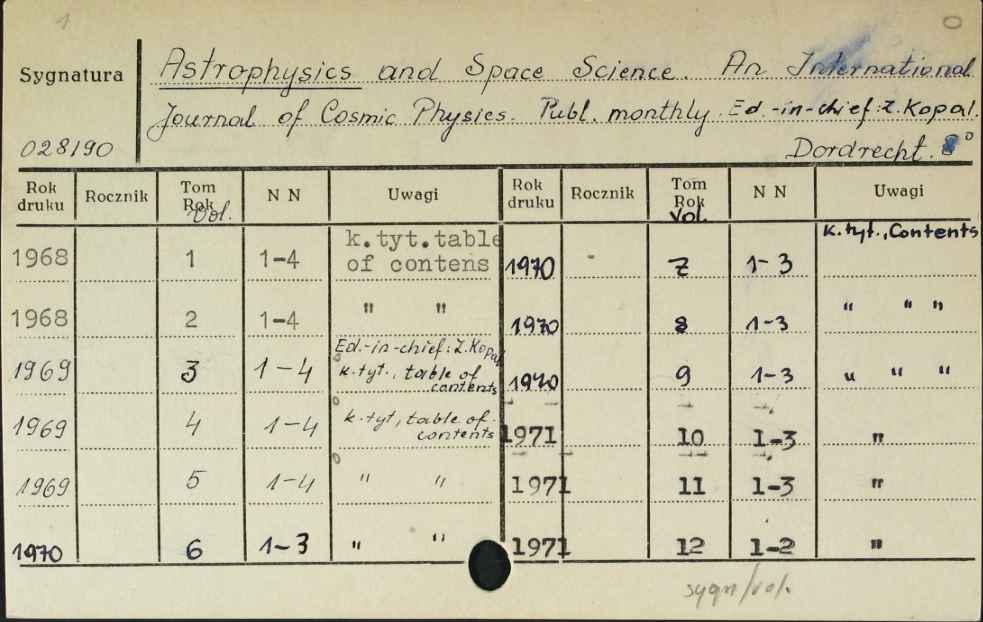 1
0
Sygnatura
Astrophysics and Space Science. An International
Journal of Cosmic Physics. Publ. monthly. Ed.-in-chief: Z. Kopal.
028190
Dordrecht. 8°
Rok druku Rocznik Tom Rok Vol. N N Uwagi Rok druku Rocznik Tom Rok Vol. N N Uwagi
1968 1 1-4 k.tyt.table of contens 1970 - 7 1-3 k.tyt., Contents
1968 2 1-4 " " 1970 8 1-3 " " "
1969 3 1-4 Ed.-in-chief: Z. Kopal k.tyt., table of contents 1970 9 1-3 " " "
1969 4 1-4 k.tyt, table of contents 1971 10 1-3 "
1969 5 1-4 " " 1971 11 1-3 "
1970 6 1-3 " " 1971 12 1-2 "
sygn/vol.